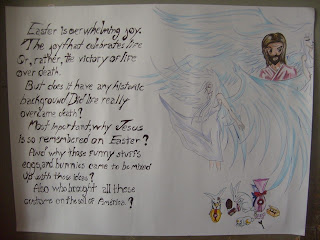 Easter is overwhelming joy.
The joy that celebrates life
Or, rather, the victory of life
over death.
But does it have any historic
background? Did life really
overcame death?
Most important, why Jesus
is so remembered on Easter?
And why those funny stuffs
eggs, and bunnies came to be mixed
up with those ideas?
Also who brought all those
customs on the soil of America?